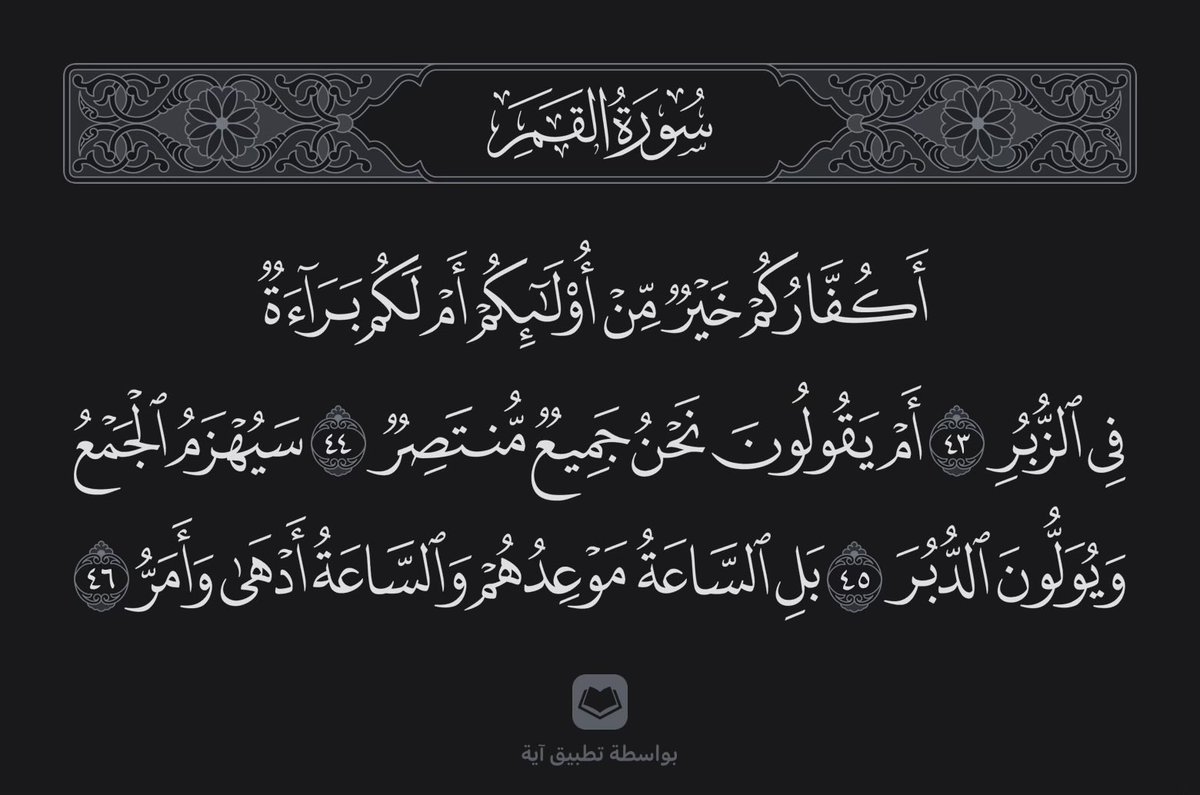 سُورَةُ القَمَرِ
أَكُفَّارُكُمْ خَيْرٌ مِّنْ أُو۟لَـٰٓئِكُمْ أَمْ لَكُم بَرَآءَةٌ
فِى ٱلزُّبُرِ ٤٣ أَمْ يَقُولُونَ نَحْنُ جَمِيعٌ مُّنتَصِرٌ ٤٤ سَيُهْزَمُ ٱلْجَمْعُ
وَيُوَلُّونَ ٱلدُّبُرَ ٤٥ بَلِ ٱلسَّاعَةُ مَوْعِدُهُمْ وَٱلسَّاعَةُ أَدْهَىٰ وَأَمَرُّ ٤٦
بواسطة تطبيق آية